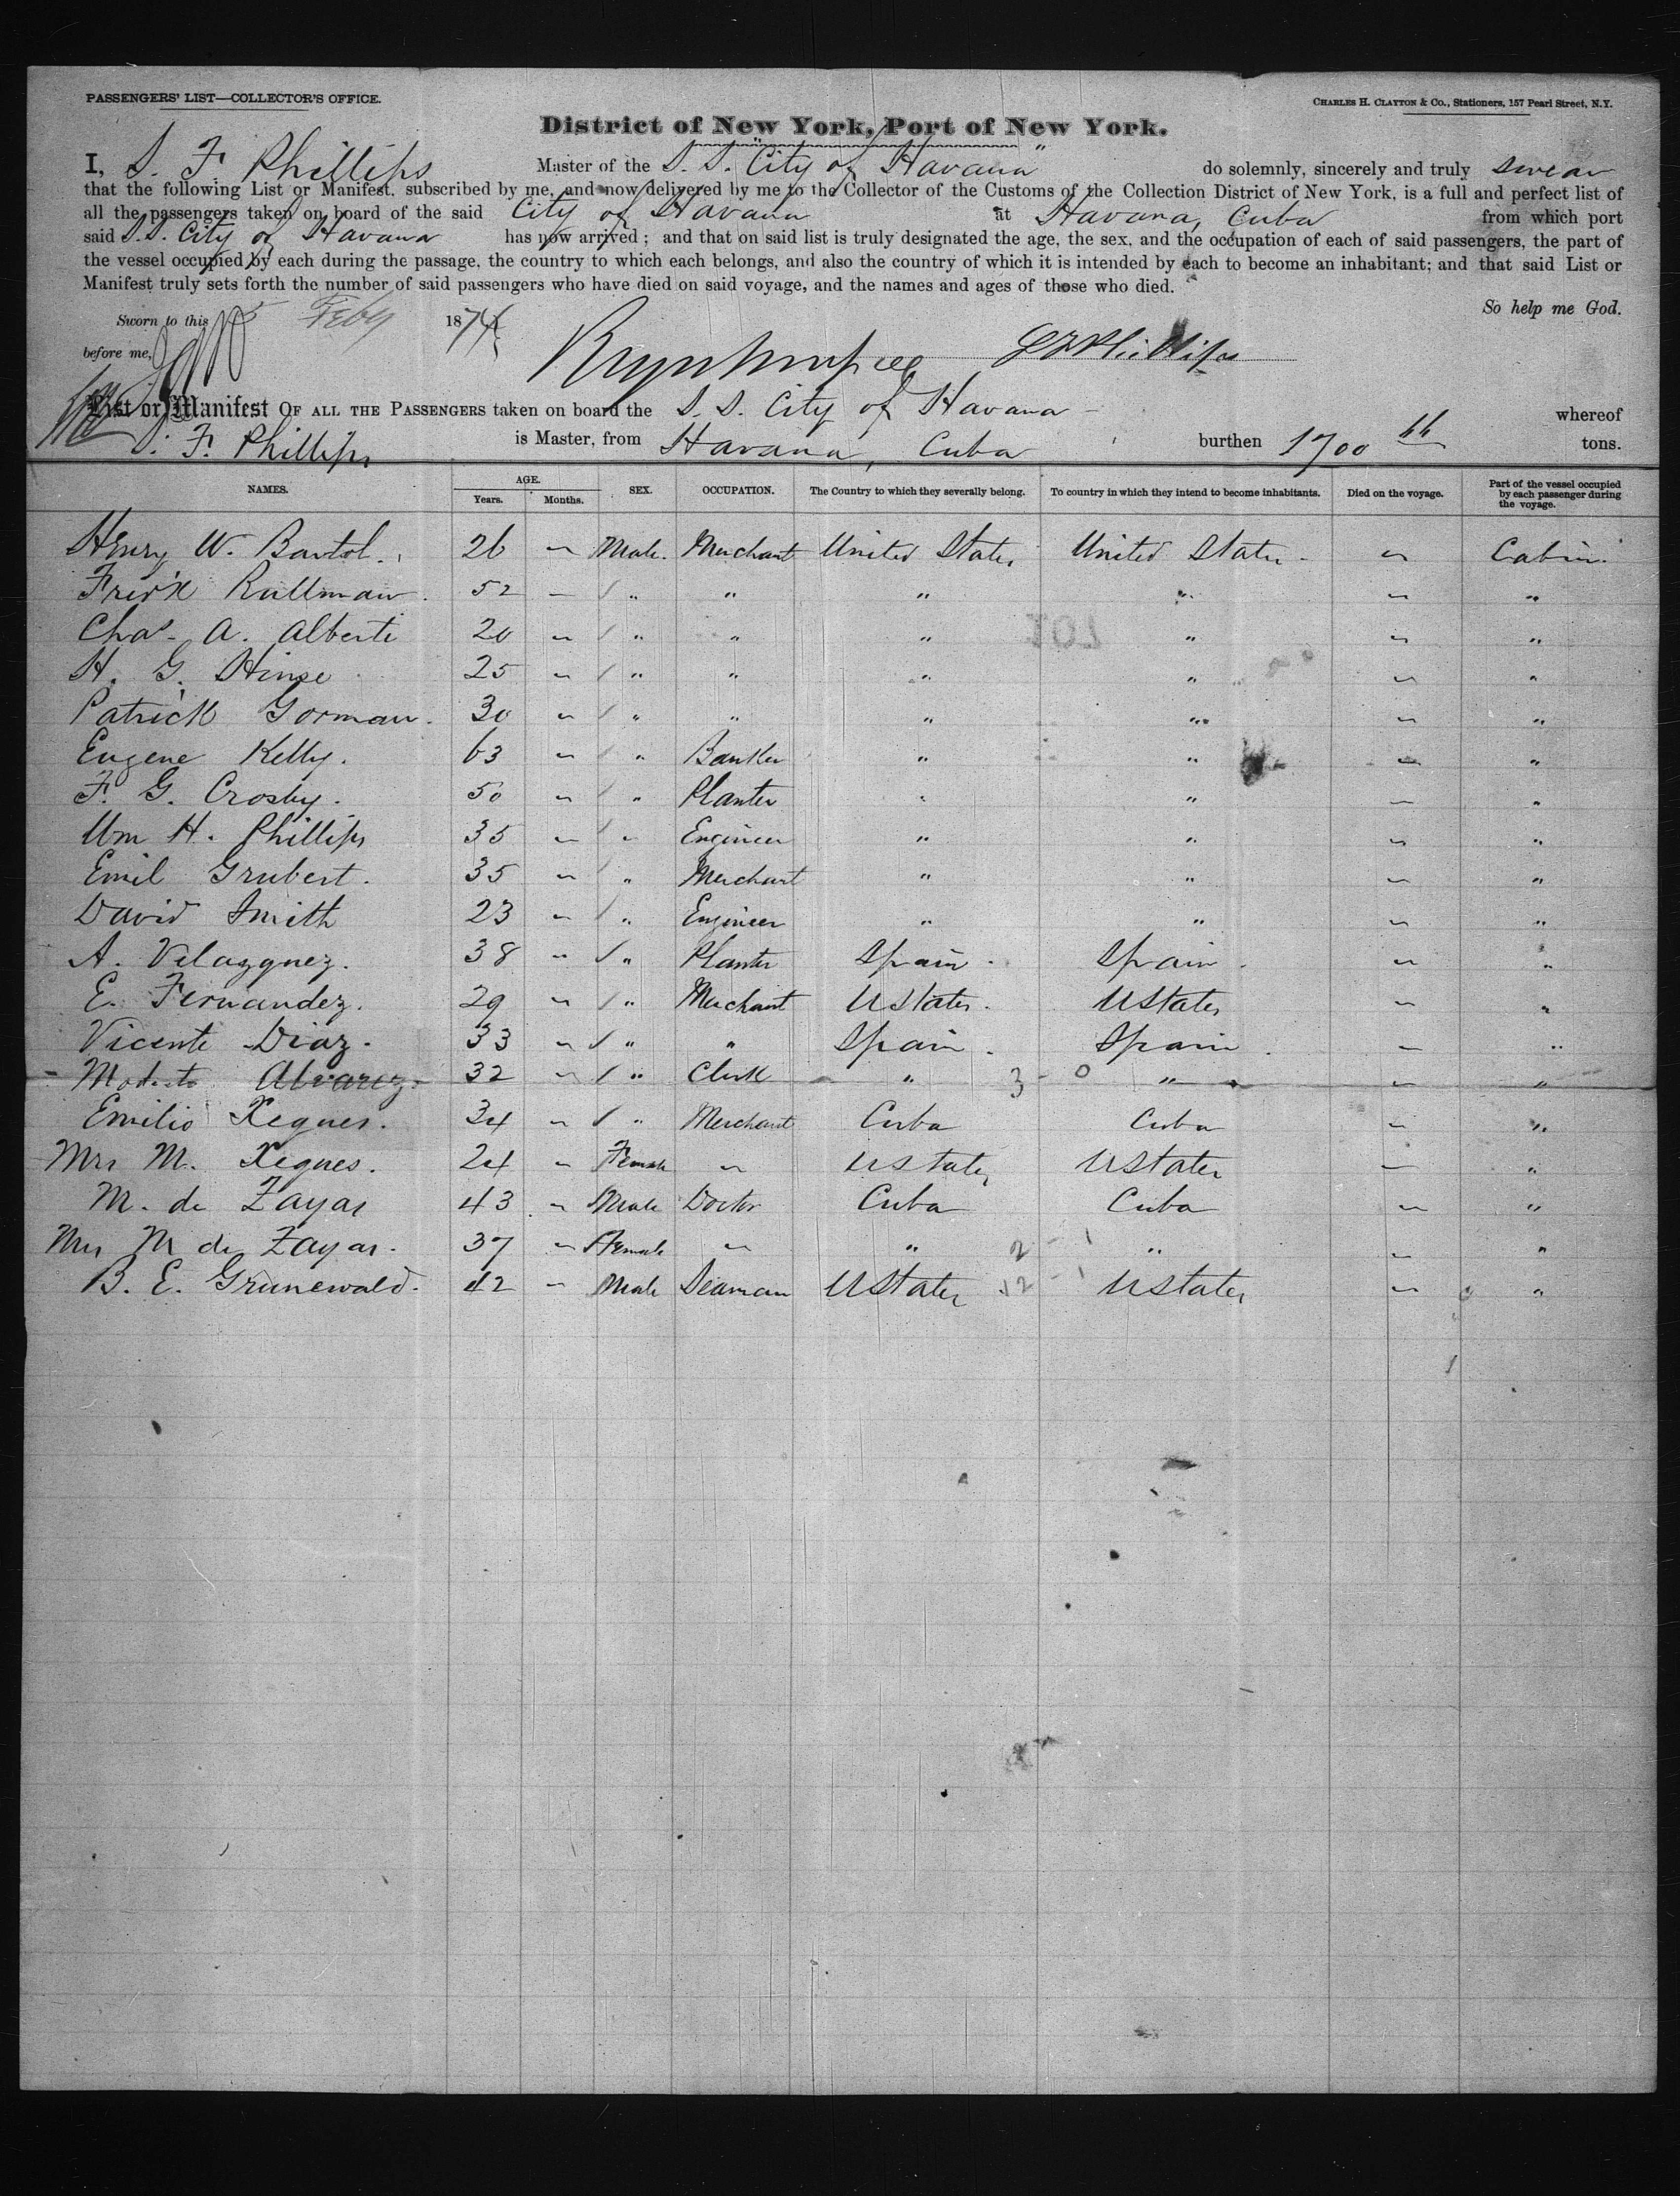 PASSENGERS' LIST—COLLECTOR'S OFFICE. CHARLES H. CLAYTON & CO., Stationers, 157 Pearl Street, N.Y.
District of New York, Port of New York.
I, S. F. Phillips Master of the S. S. "City of Havana" do solemnly, sincerely and truly swear
that the following List or Manifest, subscribed by me, and now delivered by me to the Collector of the Customs of the Collection District of New York, is a full and perfect list of
all the passengers taken on board of the said City of Havana at Havana, Cuba from which port
said S.S. City of Havana has now arrived; and that on said list is truly designated the age, the sex, and the occupation of each of said passengers, the part of
the vessel occupied by each during the passage, the country to which each belongs, and also the country of which it is intended by each to become an inhabitant; and that said List or
Manifest truly sets forth the number of said passengers who have died on said voyage, and the names and ages of those who died.
So help me God.
Sworn to this 5 Feby 1874
before me, S F Phillips
List or Manifest OF ALL THE PASSENGERS taken on board the S. S. City of Havana whereof
S. F. Phillips is Master, from Havana, Cuba burthen 1700 tons.
NAMES. AGE. Years. Months. SEX. OCCUPATION. The Country to which they severally belong. To country in which they intend to become inhabitants. Died on the voyage. Part of the vessel occupied by each passenger during the voyage.
Henry W. Bartol. 26 – Male. Merchant United States United States – Cabin.
Fred'k Rullman. 52 – " " " " – "
Chas. A. Alberti 20 – " " " " – "
H. G. Hinse 25 – " " " " – "
Patrick Gorman. 30 – " " " " – "
Eugene Kelly. 63 – " Banker " " – "
F. G. Crosby. 50 – " Planter " " – "
Wm H. Phillips 35 – " Engineer " " – "
Emil Grubert. 35 – " Merchant " " – "
David Smith 23 – " Engineer " " – "
A. Velazquez. 38 – " Planter Spain. Spain. – "
E. Fernandez. 29 – " Merchant UStates. UStates – "
Vicente Diaz. 33 – " " Spain. Spain. – "
Modesto Alvarez. 32 – " Clerk " 3 - 0 " – "
Emilio Xeques. 34 – " Merchant Cuba Cuba – "
Mrs M. Xeques. 24 – Female – UStates UStates – "
M. de Zayas 43 – Male Doctor Cuba Cuba – "
Mrs M de Zayas. 37 – Female – " 2 - 1 " – "
B. E. Grunewald. 42 – Male Seaman UStates 12 - 1 UStates – "